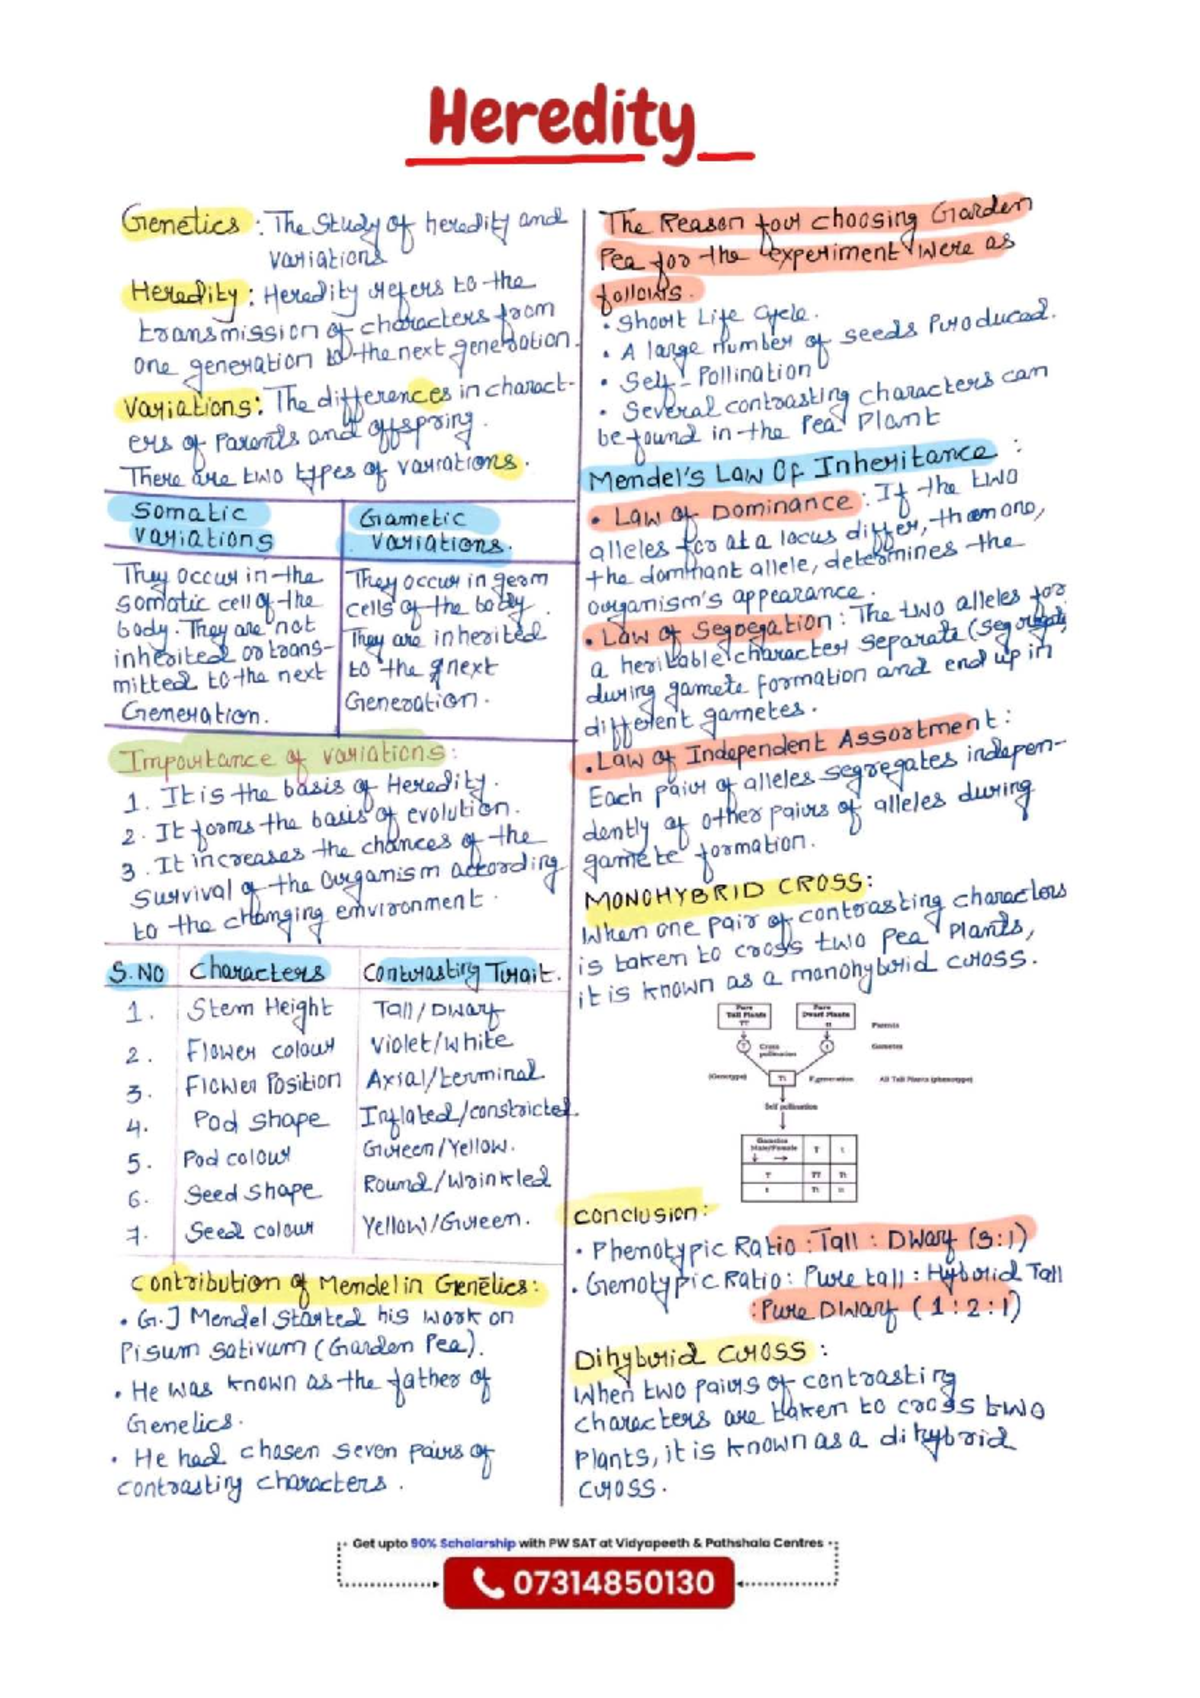 Heredity
Genetics : The Study of heredity and
variations
Heredity : Heredity refers to the
transmission of characters from
one generation to the next generation.
Variations : The differences in charact-
ers of Parents and offspring.
There are two types of variations.
Somatic
variations
Gametic
variations.
They occur in the
somatic cell of the
body. They are not
inherited or trans-
mitted to the next
Generation.
They occur in germ
cells of the body.
They are inherited
to the next
Generation.
Importance of variations:
1. It is the basis of Heredity.
2. It forms the basis of evolution.
3. It increases the chances of the
survival of the Organism according
to the changing environment.
S.NO Characters Contrasting Trait.
1. Stem Height Tall/Dwarf
2. Flower colour Violet/white
3. Flower Position Axial/terminal
4. Pod shape Inflated/constricted.
5. Pod colour Green/Yellow.
6. Seed Shape Round/Wrinkled
7. Seed colour Yellow/Green.
Contribution of Mendel in Genetics:
• G.J Mendel Started his work on
Pisum sativum (Garden Pea).
• He was known as the father of
Genetics.
• He had chosen seven pairs of
contrasting characters.
The Reason for choosing Garden
Pea for the experiment were as
follows.
• Short Life Cycle.
• A large number of seeds Produced.
• Self-Pollination
• Several contrasting characters can
be found in the Pea Plant
Mendel's Law Of Inheritance :
• Law of Dominance : If the two
alleles for at a locus differ, then one,
the dominant allele, determines the
organism's appearance.
• Law of Segregation : The two alleles for
a heritable character separate (segregate)
during gamete formation and end up in
different gametes.
• Law of Independent Assortment :
Each pair of alleles segregates indepen-
dently of other pairs of alleles during
gamete formation.
MONOHYBRID CROSS:
When one pair of contrasting characters
is taken to cross two pea Plants,
it is known as a monohybrid cross.
Pure
Tall Plants
TT
Pure
Dwarf Plants
tt
Parents
T
Cross
pollination
t
Gametes
(Genotype) Tt F₁generation All Tall Plants (phenotype)
Self pollination
Gametes
Male/Female T t
T TT Tt
t Tt tt
Conclusion:
• Phenotypic Ratio : Tall : Dwarf (3:1)
• Genotypic Ratio : Pure tall : Hybrid Tall
: Pure Dwarf (1:2:1)
Dihybrid cross :
When two pairs of contrasting
characters are taken to cross two
plants, it is known as a dihybrid
cross.
Get upto 90% Scholarship with PW SAT at Vidyapeeth & Pathshala Centres
07314850130